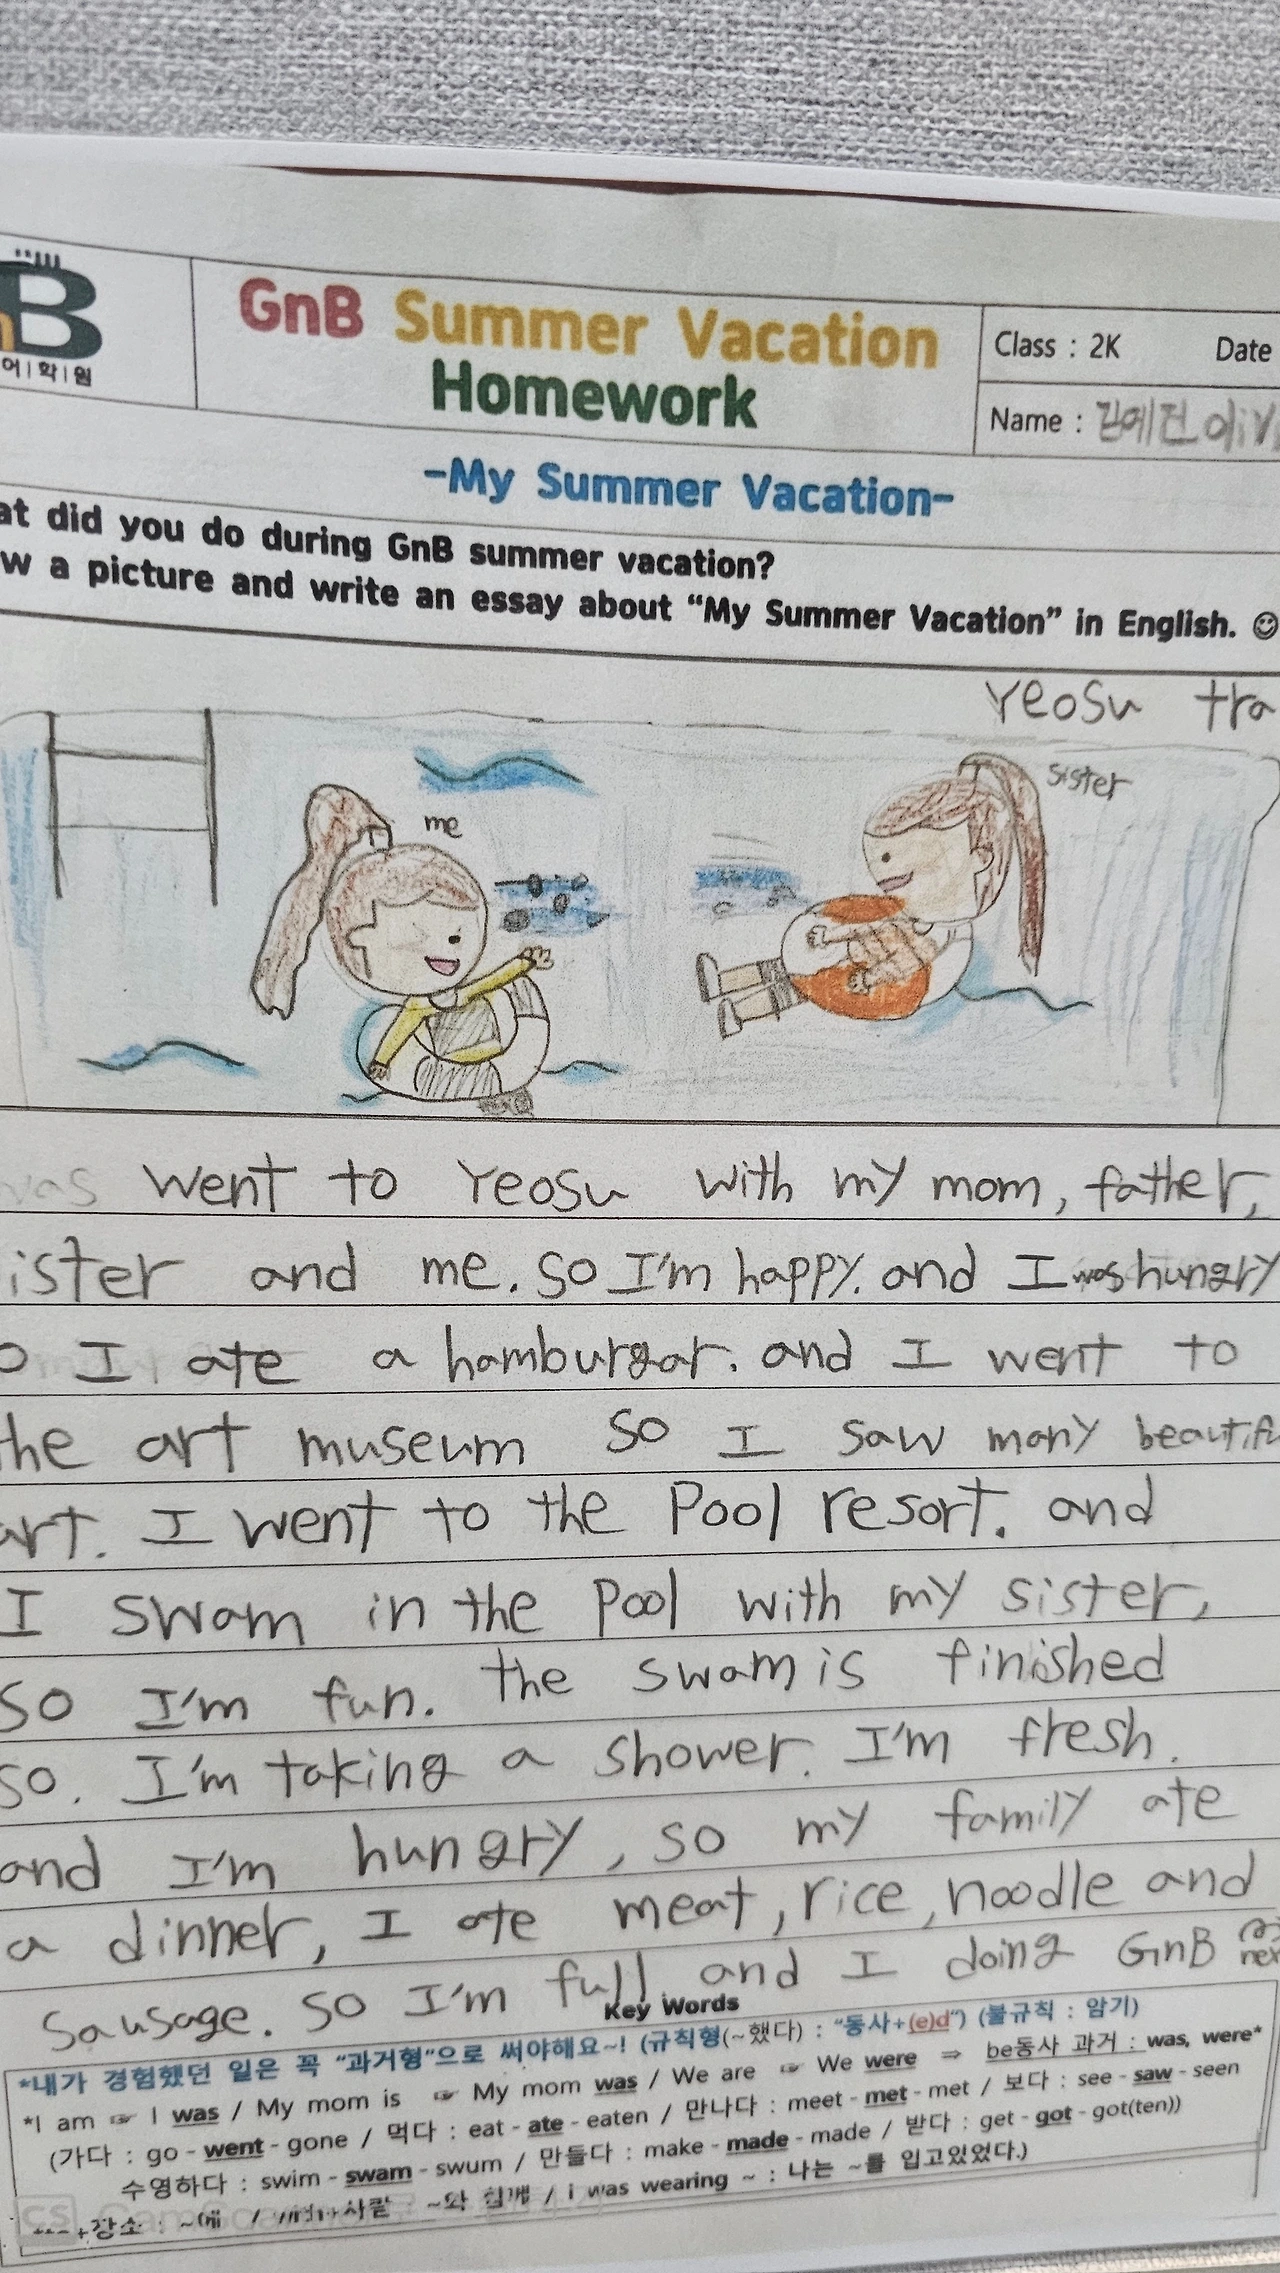 B
어|학|원
GnB Summer Vacation
Homework
Class : 2K Date
Name : 김예진 oliv
-My Summer Vacation-
at did you do during GnB summer vacation?
w a picture and write an essay about “My Summer Vacation” in English. ☺
Yeosu tra
sister
me
was went to Yeosu with my mom, father,
ister and me. so I'm happy. and I was hungry
o I ate a hamburgar. and I went to
he art museum so I saw many beautifu
art. I went to the Pool resort. and
I swam in the Pool with my sister,
so I'm fun. the swam is finished
so. I'm taking a shower. I'm fresh.
and I'm hungry, so my family ate
a dinner, I ate meat, rice, noodle and
sausage. so I'm full and I doing GnB
nex
Key Words
*내가 경험했던 일은 꼭 “과거형”으로 써야해요~! (규칙형(~했다) : “동사+(e)d”) (불규칙 : 암기)
*I am ☞ I was / My mom is ☞ My mom was / We are ☞ We were ⇒ be동사 과거 : was, were*
(가다 : go - went - gone / 먹다 : eat - ate - eaten / 만나다 : meet - met - met / 보다 : see - saw - seen
수영하다 : swim - swam - swum / 만들다 : make - made - made / 받다 : get - got - got(ten))
+장소 : ~에 / +사람 : ~와 함께 / I was wearing ~ : 나는 ~를 입고있었다.)
CS